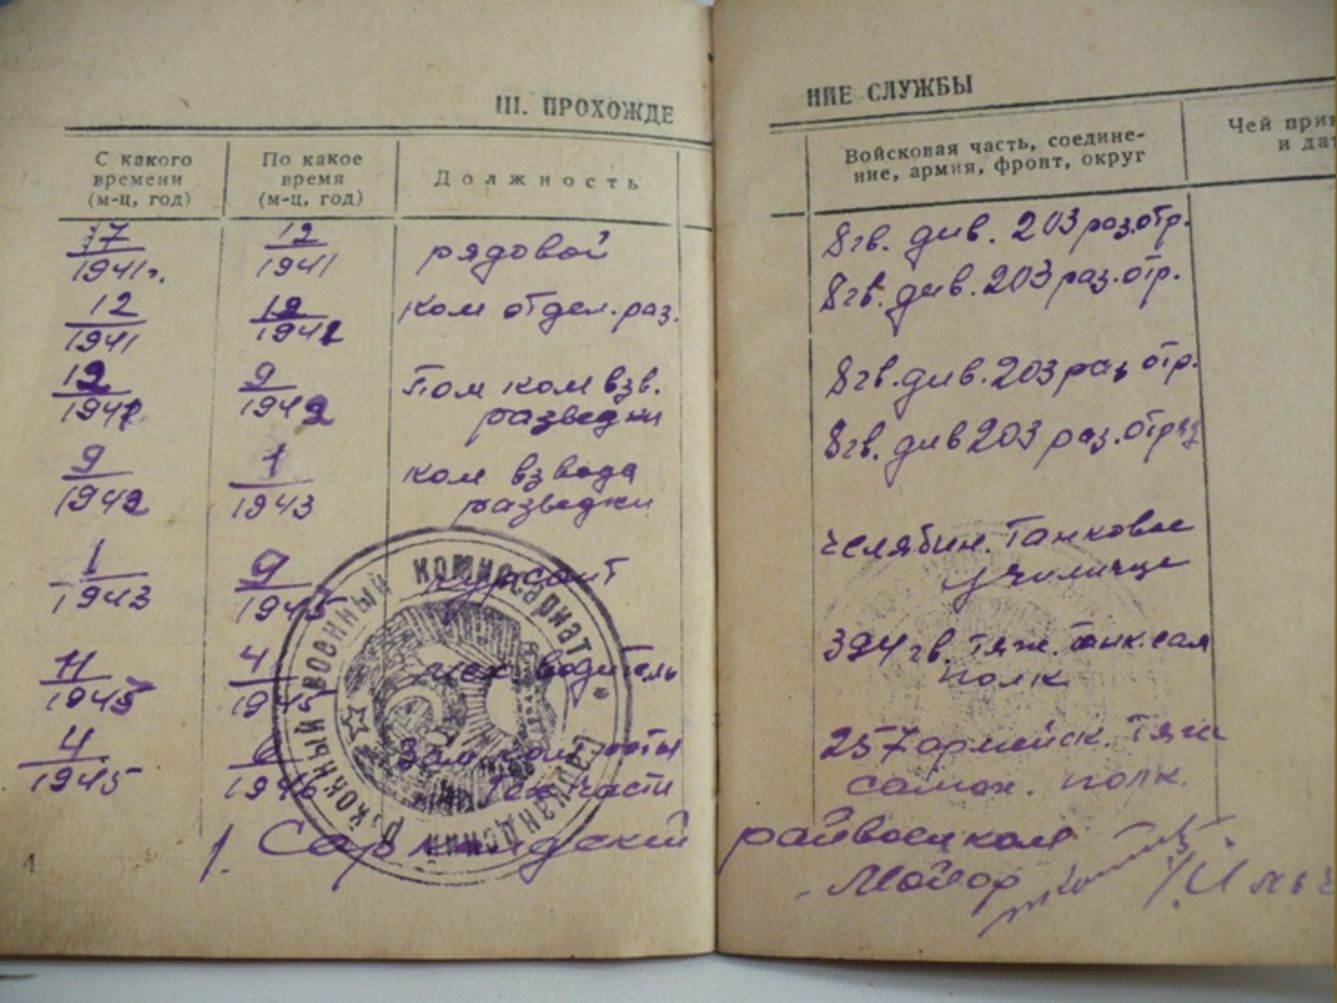 III. ПРОХОЖДЕ
НИЕ СЛУЖБЫ
С какого времени (м-ц, год)
По какое время (м-ц, год)
Должность
Войсковая часть, соедине-
ние, армия, фронт, округ
Чей
и
7/1941г. 12/1941 рядовой 8 гв. див. 203 раз. отр.
12/1941 12/1941 ком отдел. раз. 8 гв. див. 203 раз. отр.
12/1941 9/1942 Пом ком взв. 8 гв. див. 203 раз отр.
разведки
9/1942 1/1943 ком взвода 8 гв. див 203 раз.
разведки
1/1943 9/1945 курсант Челябин. Танковое
училище
11/1945 4/1945 мех. водитель 394 гв. тяж. танк. сам
полк
4/1945 6/1946 Зам. ком роты 257 армейск. тяж
Тех части самох. полк.
военный комиссариат
райвоенком
Майор
4